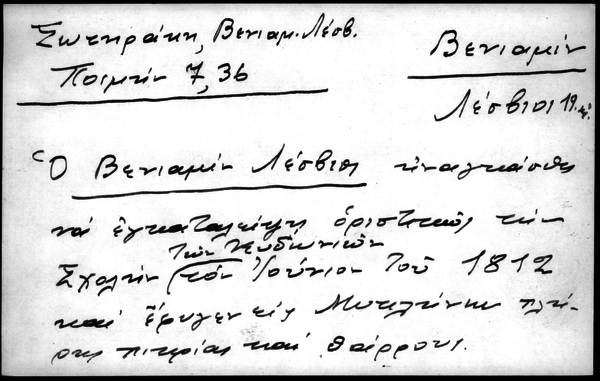 Σωτηράκη, Βενιαμ. Λέσβ.
Ποιμήν 7, 36
Βενιαμίν
Λέσβιοι 19. αἰ.
Ὁ Βενιαμίν Λέσβιος ἠναγκάσθη
νά ἐγκαταλείψῃ ὁριστικῶς τήν
τῶν Κυδωνιῶν
Σχολήν τόν Ἰούνιον τοῦ 1812
καί ἔφυγεν εἰς Μυτιλήνην πλή-
ρης πικρίας καί θάρρους.